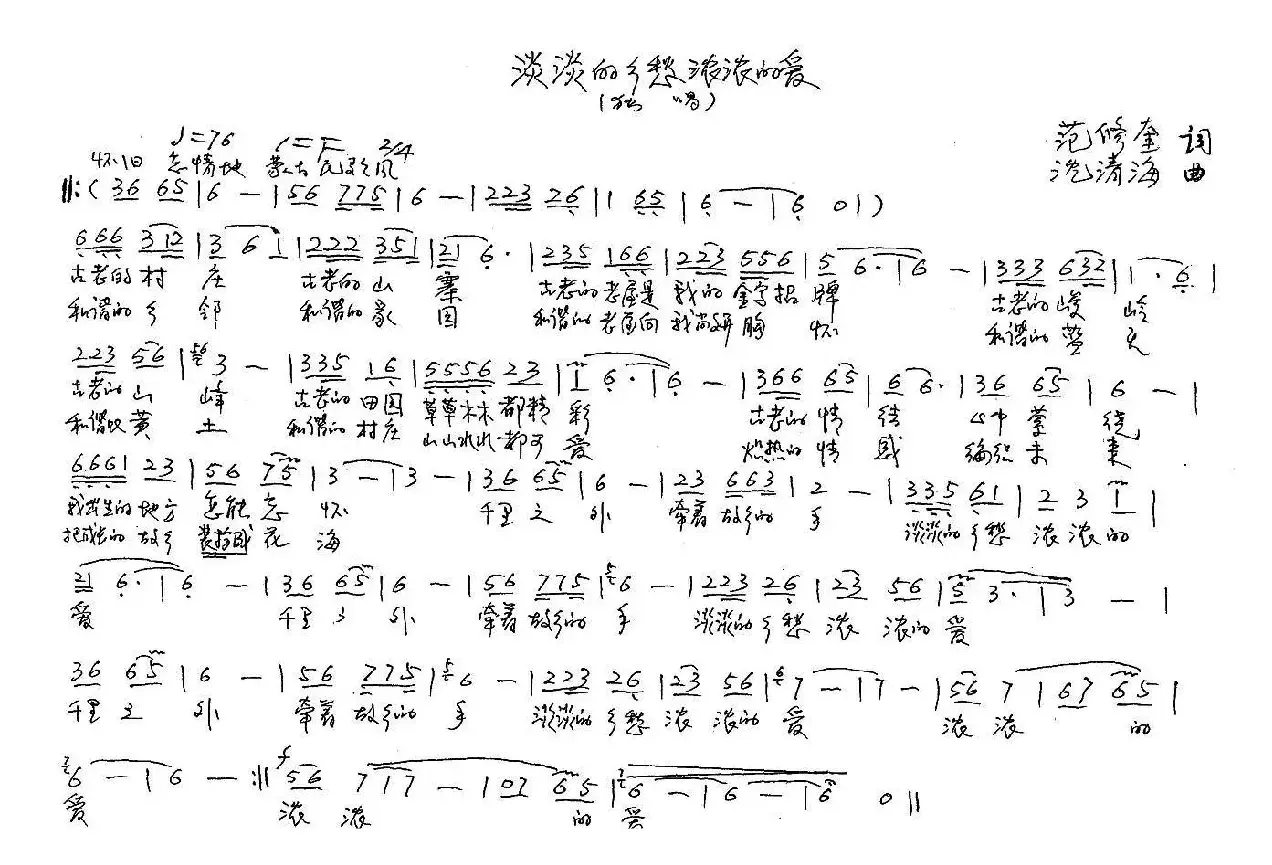 淡淡的乡愁浓浓的爱
(独 唱)
♩=76 1=F 2/4
怀旧 恋情地 蒙古民歌风
范修奎 词
沈清海 曲
‖:( 36 65 | 6 - | 56 775 | 6 - | 223 26 | 1 65 | 6 - | 6 0 | )
666 312 | 3 6 1 | 222 351 | 21 6· | 235 166 | 223 556 | 5 6· | 6 - | 333 632 | 1· 6 |
古老的村 庄 古老的山 寨 古老的老屋是 我的金字招 牌 古老的峻 岭
和谐的乡 邻 和谐的家 园 和谐的老屋向 我尚妍胸 怀 和谐的
223 56 | 3 - | 335 16 | 5556 23 | 1 6· | 6 - | 366 65 | 6 6· | 36 65 | 6 - |
古老的山 峰 古老的田园 草草木木都精 彩 古老的情 结 心中萦 绕
和谐的黄 土 和谐的村庄 山山水水都可 爱 炽热的情 感 编织未 来
6661 23 | 56 75 | 3 - | 3 - | 36 65 | 6 - | 23 663 | 2 - | 335 61 | 2 3 1 |
我出生的地方 怎能忘 怀 千里之 外 牵着故乡的 手 淡淡的乡愁 浓浓的
把成长的故乡 装扮成花 海
21 6· | 6 - | 36 65 | 6 - | 56 775 | 6 - | 223 26 | 23 56 | 5 3· | 3 - |
爱 千里之 外 牵着故乡的 手 淡淡的乡愁 浓 浓的 爱
36 65 | 6 - | 56 775 | 6 - | 223 26 | 23 56 | 7 - | 7 - | 56 7 | 67 65 |
千里之 外 牵着故乡的 手 淡淡的乡愁 浓 浓的 爱 浓 浓 的
6 - | 6 - :‖ f 56 7 | 7 - | 07 65 | 6 - | 6 - | 6 0 ‖
爱 浓 浓 的 爱